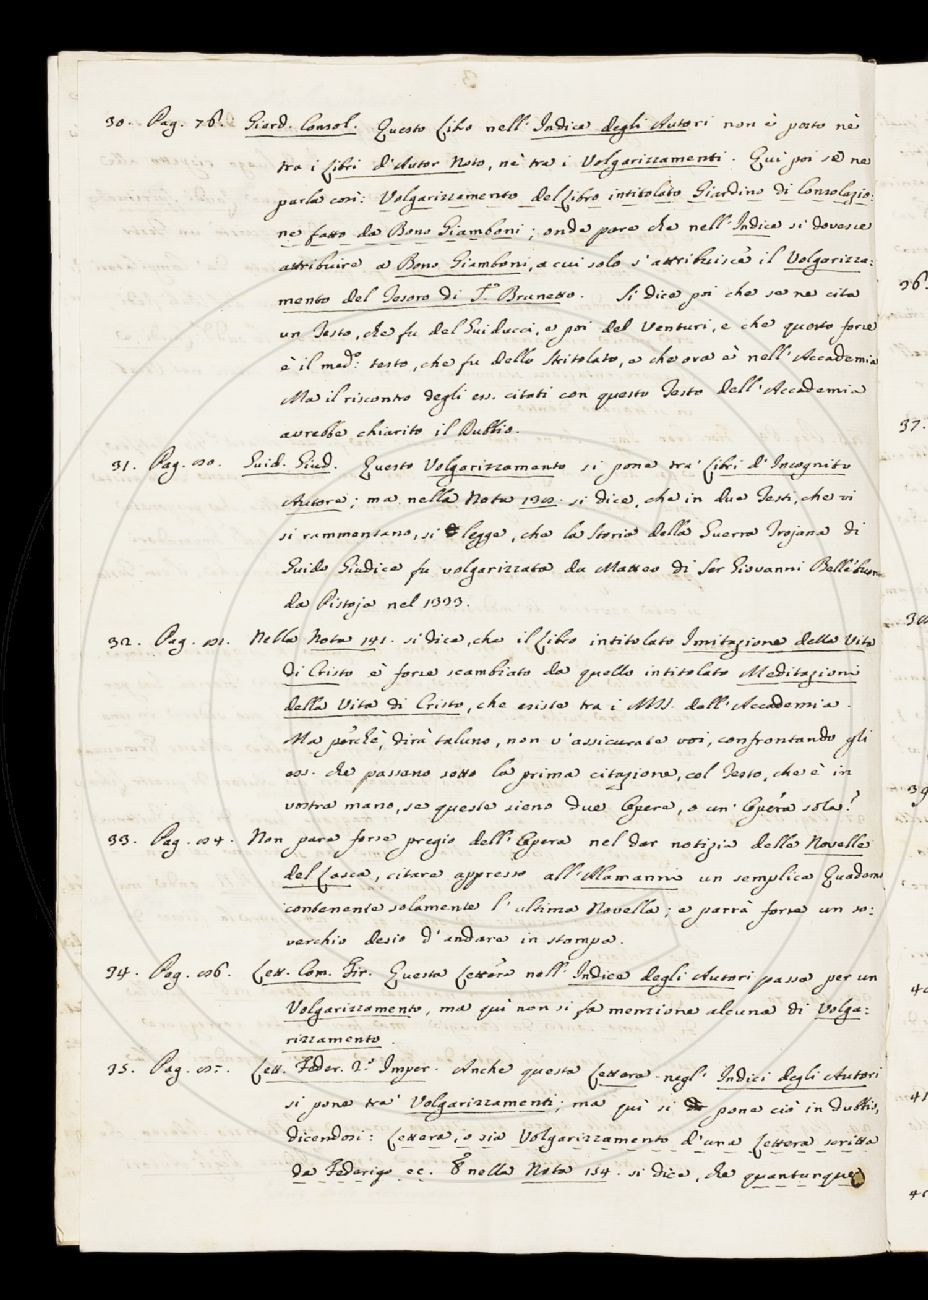 30. Pag. 76. Giard. Consol. Questo Libo nell'Indice degli Autori non è posto nè
tra i Libri d'Autor Noto, nè tra i Volgarizzamenti. Qui poi se ne
parla così: Volgarizzamento del Libro intitolato Giardino di Consolazio:
ne fatto da Bono Giamboni; onde pare che nell'Indice si dovesse
attribuire a Bono Giamboni, a cui solo s'attribuisce il Volgarizza:
mento del Tesoro di Sr. Brunetto. Si dice poi che se ne cita
un Testo, che fu del Guiducci, e poi del Venturi, e che questo forse
è il medo: testo, che fu dello Stritolato, e che ora è nell'Accademia
Ma il riscontro degli es. citati con questo Testo dell'Accademia
avrebbe chiarito il Dubbio.
31. Pag. Guid. Giud. Questo Volgarizzamento si pone tra' Libri d'Incognito
Autore; ma nella Nota si dice, che in due Testi, che vi
si rammentano, si legge, che la Storia della Guerra Trojana di
Guido Giudice fu volgarizzata da Matteo di Ser Giovanni Bellebuon
da Pistoja nel 1333.
32. Pag. Nella Nota 141. si dice, che il Libro intitolato Imitazione della Vita
di Cristo è forse scambiato da quello intitolato Meditazioni
della Vita di Cristo, che esiste tra i MSS. dell'Accademia.
Ma perchè, dirà taluno, non v'assicurate voi, confrontando gli
es. che passano sotto la prima citazione, col Testo, che è in
vostra mano, se queste sieno due Opere, o un'Opera sola?
33. Pag. Non pare forse pregio dell'Opera nel dar notizia delle Novelle
del Lasca, citare appresso all'Alamanni un semplice Quadern
contenente solamente l'ultima Novella; e parrà forse un so:
verchio desio d'andare in stampa.
34. Pag. Lett. Com. Fir. Questa Lettera nell'Indice degli Autori passa per un
Volgarizzamento, ma quì non si fa menzione alcuna di Volga:
rizzamento.
35. Pag. Lett. Feder. 2.o Imper. Anche questa Lettera negl'Indici degli Autori
si pone tra' Volgarizzamenti; ma quì si pone ciò in dubbio,
dicendosi: Lettera, o sia Volgarizzamento d'una Lettera scritta
da Federigo ec. E nella Nota 154. si dice, che quantunque
36.
37.